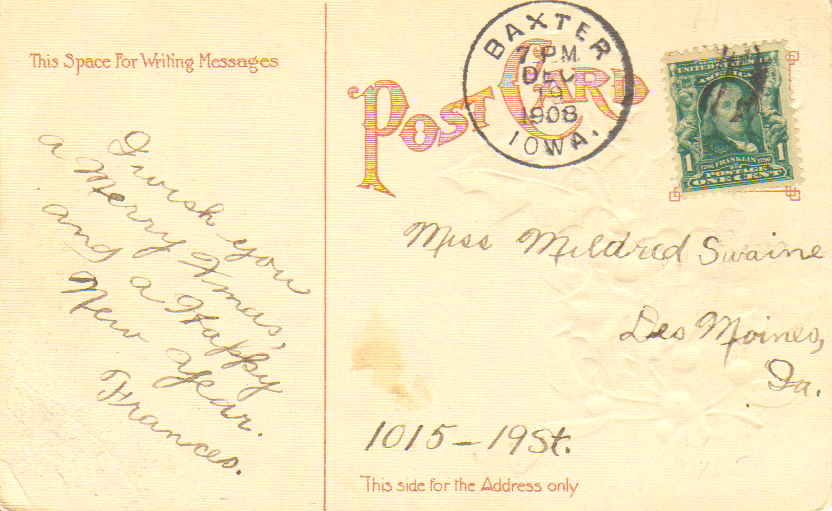 This Space For Writing Messages
POST CARD
BAXTER
7 PM
DEC
19
1908
IOWA.
UNITED STATES OF
AMERICA
1 FRANKLIN 1
POSTAGE
ONE CENT
I wish you
a Merry Xmas,
and a Happy
New Year.
Frances.
Miss Mildred Swaine
Des Moines,
Ia.
1015 – 19 St.
This side for the Address only